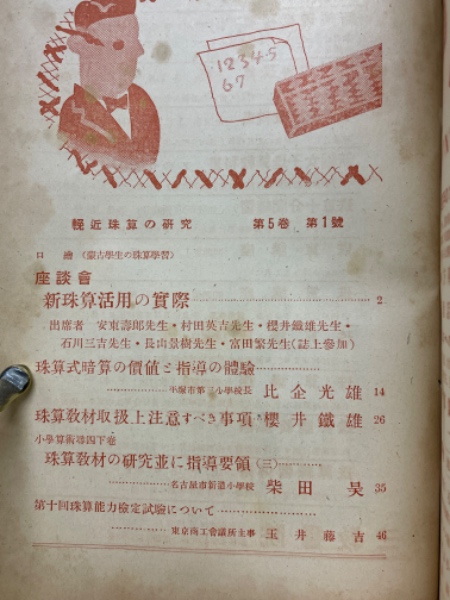 12345
67
輓近珠算の研究 第5卷 第1號
口繪 (蒙古學生の珠算學習)
座談會
新珠算活用の實際 2
出席者 安東壽郎先生・村田英吉先生・櫻井鐵雄先生・
石川三吉先生・長山景樹先生・富田繁先生(誌上參加)
珠算式暗算の價値と指導の體驗
平塚市第三小學校長 比企光雄 14
珠算敎材取扱上注意すべき事項 櫻井鐵雄 26
小學算術尋四下卷
珠算敎材の硏究並に指導要領 (三)
名古屋市新道小學校 柴田昊 35
第十回珠算能力檢定試驗について
東京商工會議所主事 玉井藤吉 46